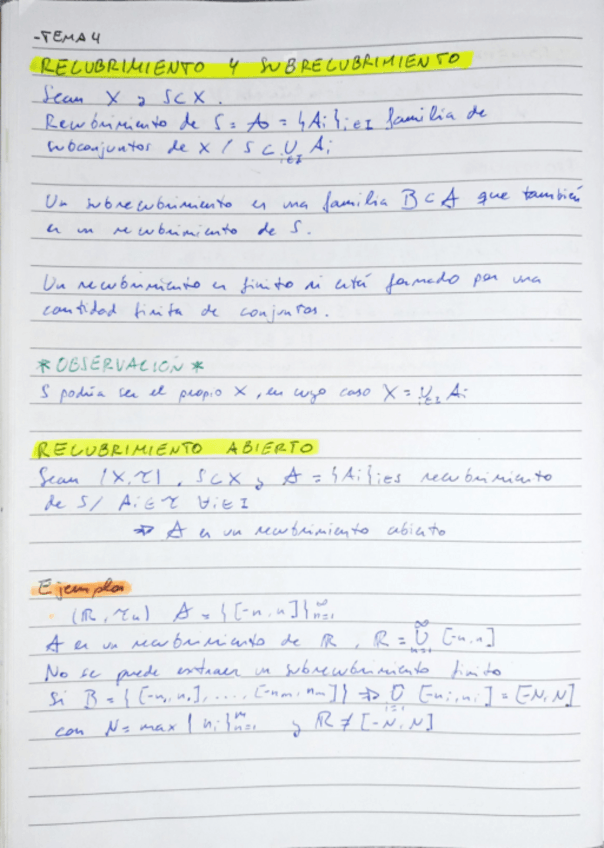 -TEMA 4
RECUBRIMIENTO Y SUBRECUBRIMIENTO
Sean X y S⊂X.
Recubrimiento de S = A = {Ai}i∈I familia de
subconjuntos de X / S ⊂ ∪i∈I Ai
Un subrecubrimiento es una familia B⊂A que también
es un recubrimiento de S.
Un recubrimiento es finito si está formado por una
cantidad finita de conjuntos.
*OBSERVACIÓN*
S podría ser el propio X, en cuyo caso X = ∪i∈I Ai
RECUBRIMIENTO ABIERTO
Sean (X,τ), S⊂X y A = {Ai}i∈I recubrimiento
de S / Ai∈τ ∀i∈I
⇒ A es un recubrimiento abierto
Ejemplos
· (ℝ, τu) A = {[-n,n]}∞n=1
A es un recubrimiento de ℝ, ℝ = ∪∞n=1 [-n,n]
No se puede extraer un subrecubrimiento finito
Si B = {[-n1,n1],...,[-nm,nm]} ⇒ ∪mi=1 [-ni,ni] = [-N,N]
con N = max{ni}mn=1 y ℝ ≠ [-N,N]